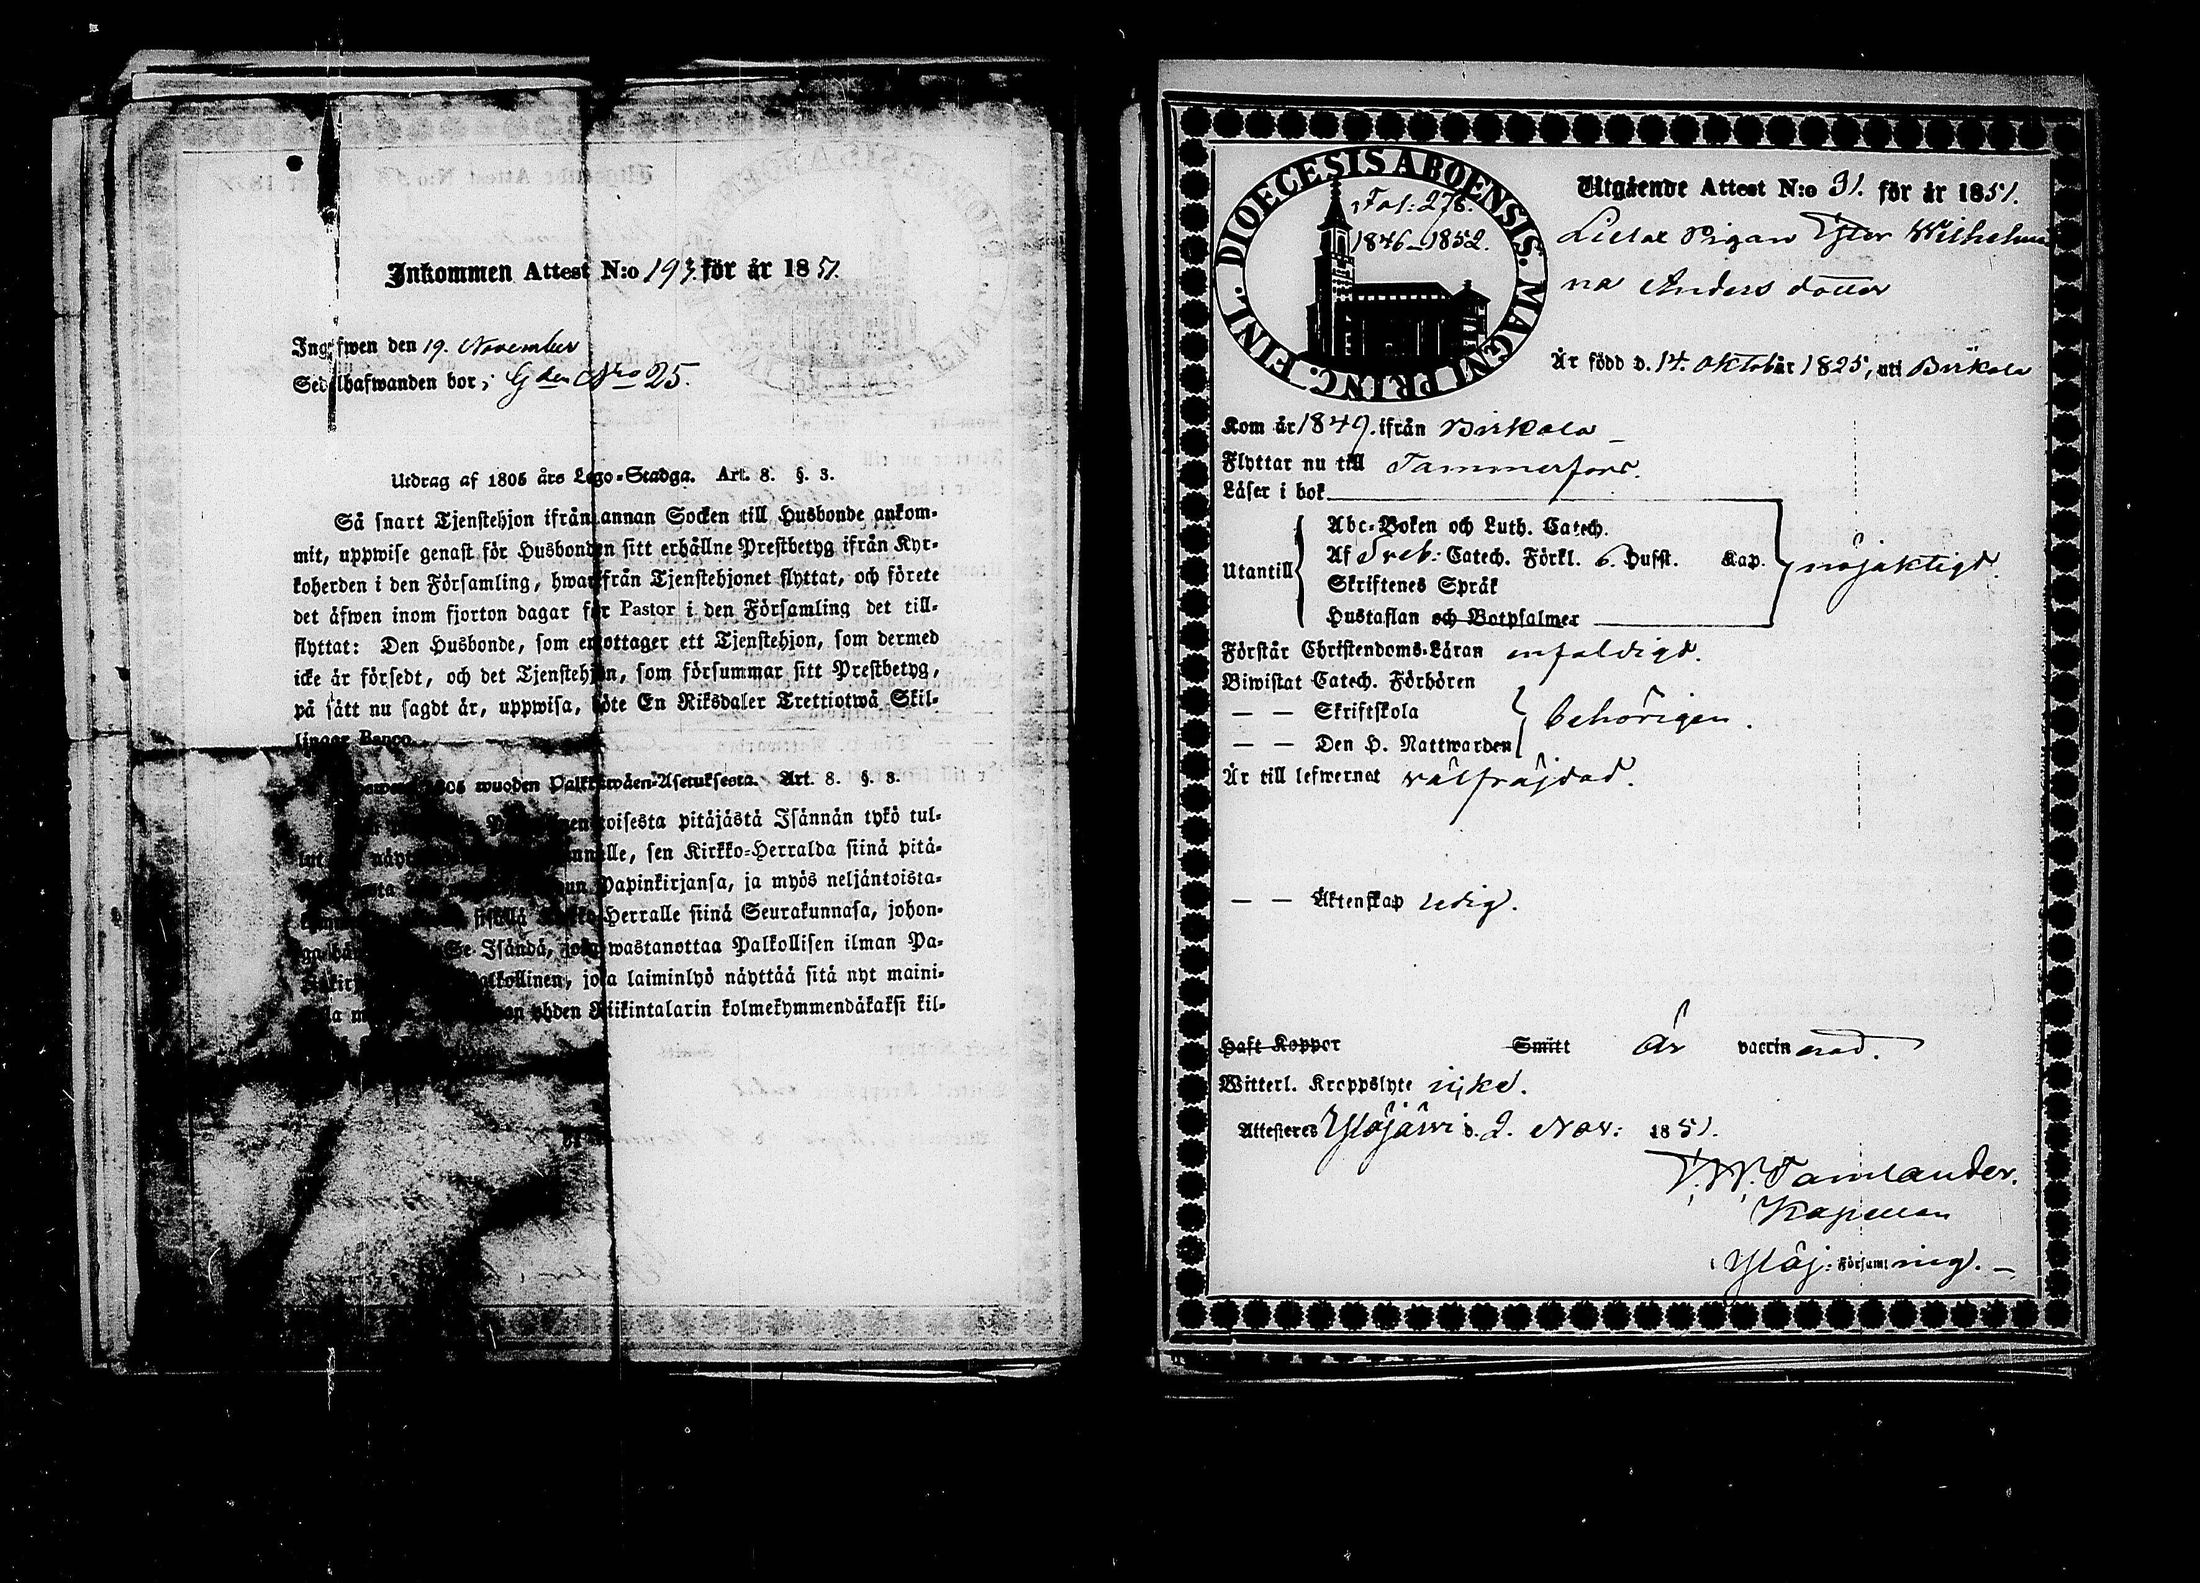 Inkommen Attest N:o 193. för år 1851.
Ingifwen den 19. November
Sedelhafwanden bor, Gden Nro 25.
Utdrag af 1805 års Lego-Stadga. Art. 8. §. 3.
Så snart Tjenstehjon ifrån annan Socken till Husbonde ankom-
mit, uppwise genast för Husbonden sitt erhållne Prestbetyg ifrån Kyr-
koherden i den Församling, hwarifrån Tjenstehjonet flyttat, och förete
det äfwen inom fjorton dagar för Pastor i den Församling det till-
flyttat: Den Husbonde, som emottager ett Tjenstehjon, som dermed
icke är försedt, och det Tjenstehjon, som försummar sitt Prestbetyg,
på sätt nu sagdt är, uppwisa, böte En Riksdaler Trettiotwå Skil-
lingar Banco.
1805 wuoden Palkkawäen-Asetuksesta. Art. 8. §. 3.
toisesta pitäjästä Isännän tykö tul-
sen Kirkko-Herralda siinä pitä-
Papinkirjansa, ja myös neljäntoista-
sisällä Kirkko-Herralle siinä Seurakunnasa, johon-
Se Isändä, joka wastanottaa Palkollisen ilman Pa-
Palkollinen, joka laiminlyö näyttää sitä nyt maini-
yhden Riikintalarin kolmekymmendäkaksi kil-
DIOECESIS ABOENSIS. MAGNI PRINC. FINL.
Fol: 276.
1846–1852.
Utgående Attest N:o 31. för år 1851.
Pigan Wilhelmi
na Anders dotter
Är född d. 14. Oktober 1825, uti Birkala
Kom år 1849. ifrån Birkala
Flyttar nu till Tammerfors.
Läser i bok
Utantill
Abc-Boken och Luth. Catech.
Af Sveb: Catech. Förkl. 6. Hufst. Kap.
Skriftenes Språk
Hustaflan och Botpsalmer
nöjaktigt.
Förstår Christendoms-Läran enfaldigt.
Biwistat Catech. Förhören
— — Skriftskola
— — Den H. Nattwarden
behörigen.
Är till lefwernet välfräjdad.
— — Äktenskap ledig.
Haft Koppor Smitt Är vaccinerad.
Witterl. Kroppslyte icke.
Attesteras Ylöjärvi d. 2. Nov: 1851.
Tamlander.
Kapellan
i Ylöj: Församling. —